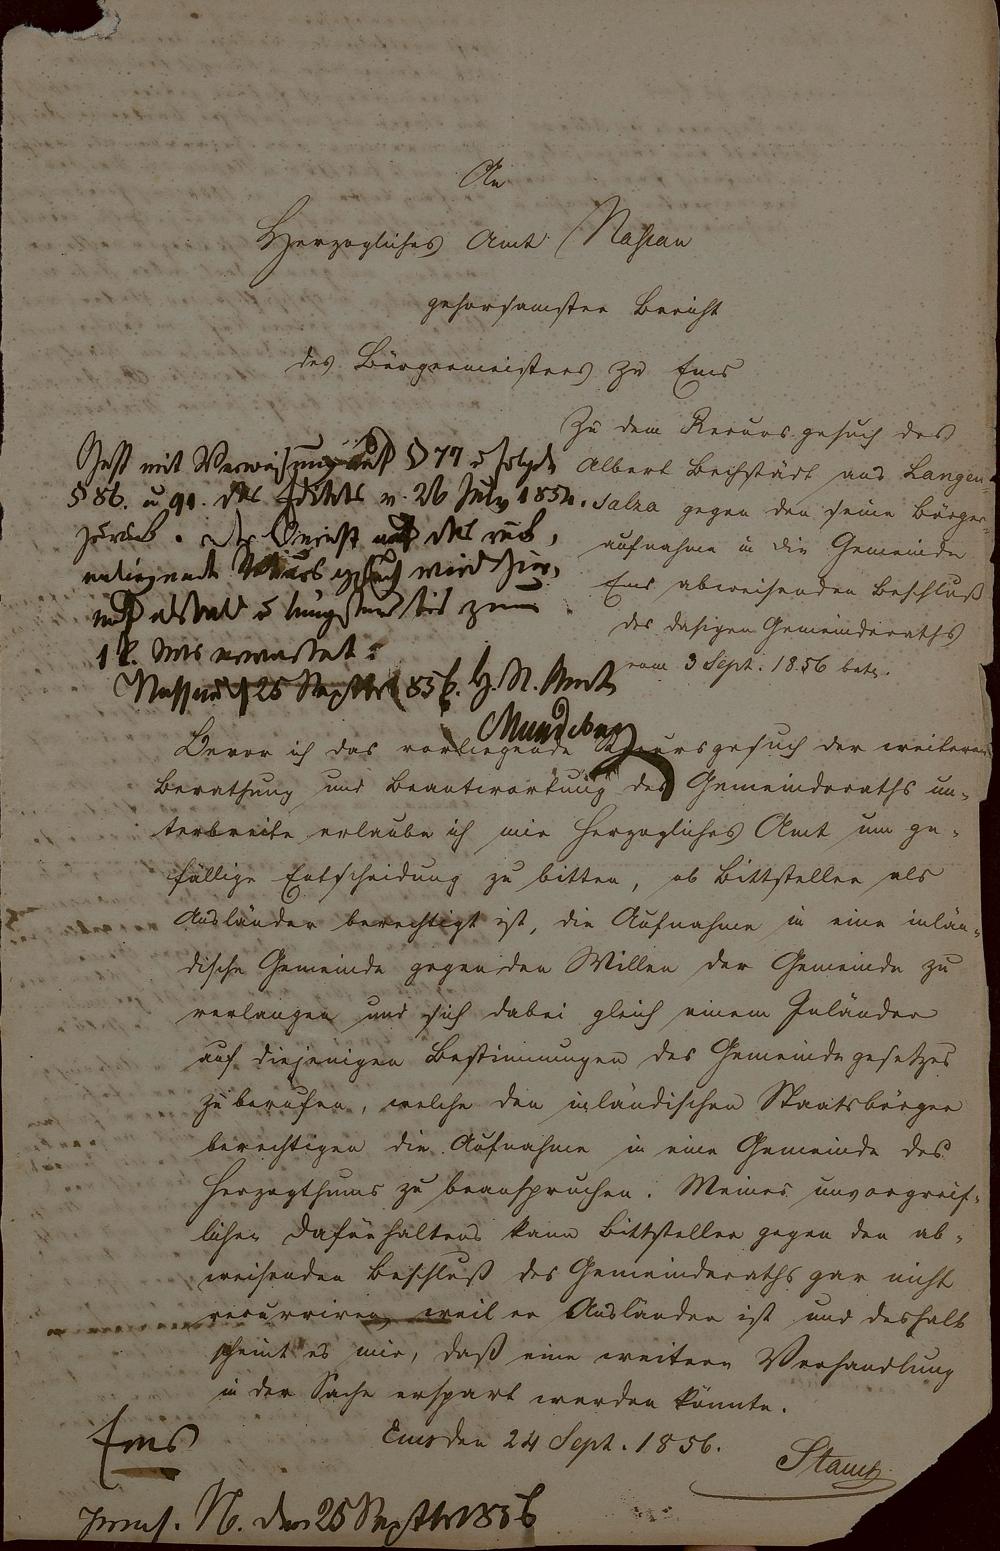 An
Herzogliches Amt Nassau
gehorsamster Bericht
des Bürgermeisters zu Ems
Zu dem Recursgesuch des
Albert Bechstädt aus Langen-
salza gegen den seine Bürger-
aufnahme in die Gemeinde
Ems abweisenden Beschluß
des dasigen Gemeinderaths
vom 3 Sept. 1856 betr.
Geht mit Verweisung auf § 77 u folgde
§ 86. u 91. des Edikts v. 26 July 1854.
zurück. Der Bericht auf das rück,
wird hier,
auf alsbald u längstens bis zum
1 k. Mts erwartet.
Nassau d 25 Septbr 1856. H. N. Amt
Bevor ich das vorliegende Recursgesuch der weiteren
Berathung und Beantwortung des Gemeinderaths un-
terbreite erlaube ich mir Herzogliches Amt um ge-
fällige Entscheidung zu bitten, ob Bittsteller als
Ausländer berechtigt ist, die Aufnahme in eine inlän-
dische Gemeinde gegen den Willen der Gemeinde zu
verlangen und sich dabei gleich einem Inländer
auf diejenigen Bestimmungen des Gemeindegesetzes
zu berufen, welche den inländischen Staatsbürger
berechtigen die Aufnahme in eine Gemeinde des
Herzogthums zu beanspruchen. Meines unvorgreif-
lichen Dafürhaltens kann Bittsteller gegen den ab-
weisenden Beschluß des Gemeinderaths gar nicht
recurriren weil er Ausländer ist und deshalb
scheint es mir, daß eine weitere Verhandlung
in der Sache erspart werden könnte.
Ems den 24 Sept. 1856.
Ems
praes. N. den 25 Septbr 1856